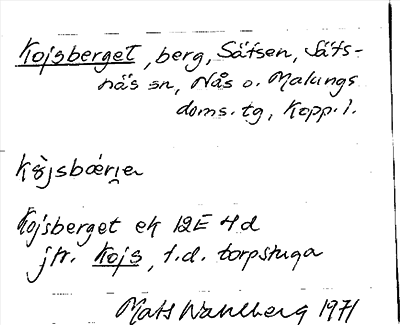 Kojsberget, berg, Säfsen, Säfs-
näs sn, Nås o. Malungs
doms. tg, Kopp. l.
Kojsberget ek 12E 4d
jfr. Kojs, f.d. torpstuga
Mats Wahlberg 1971